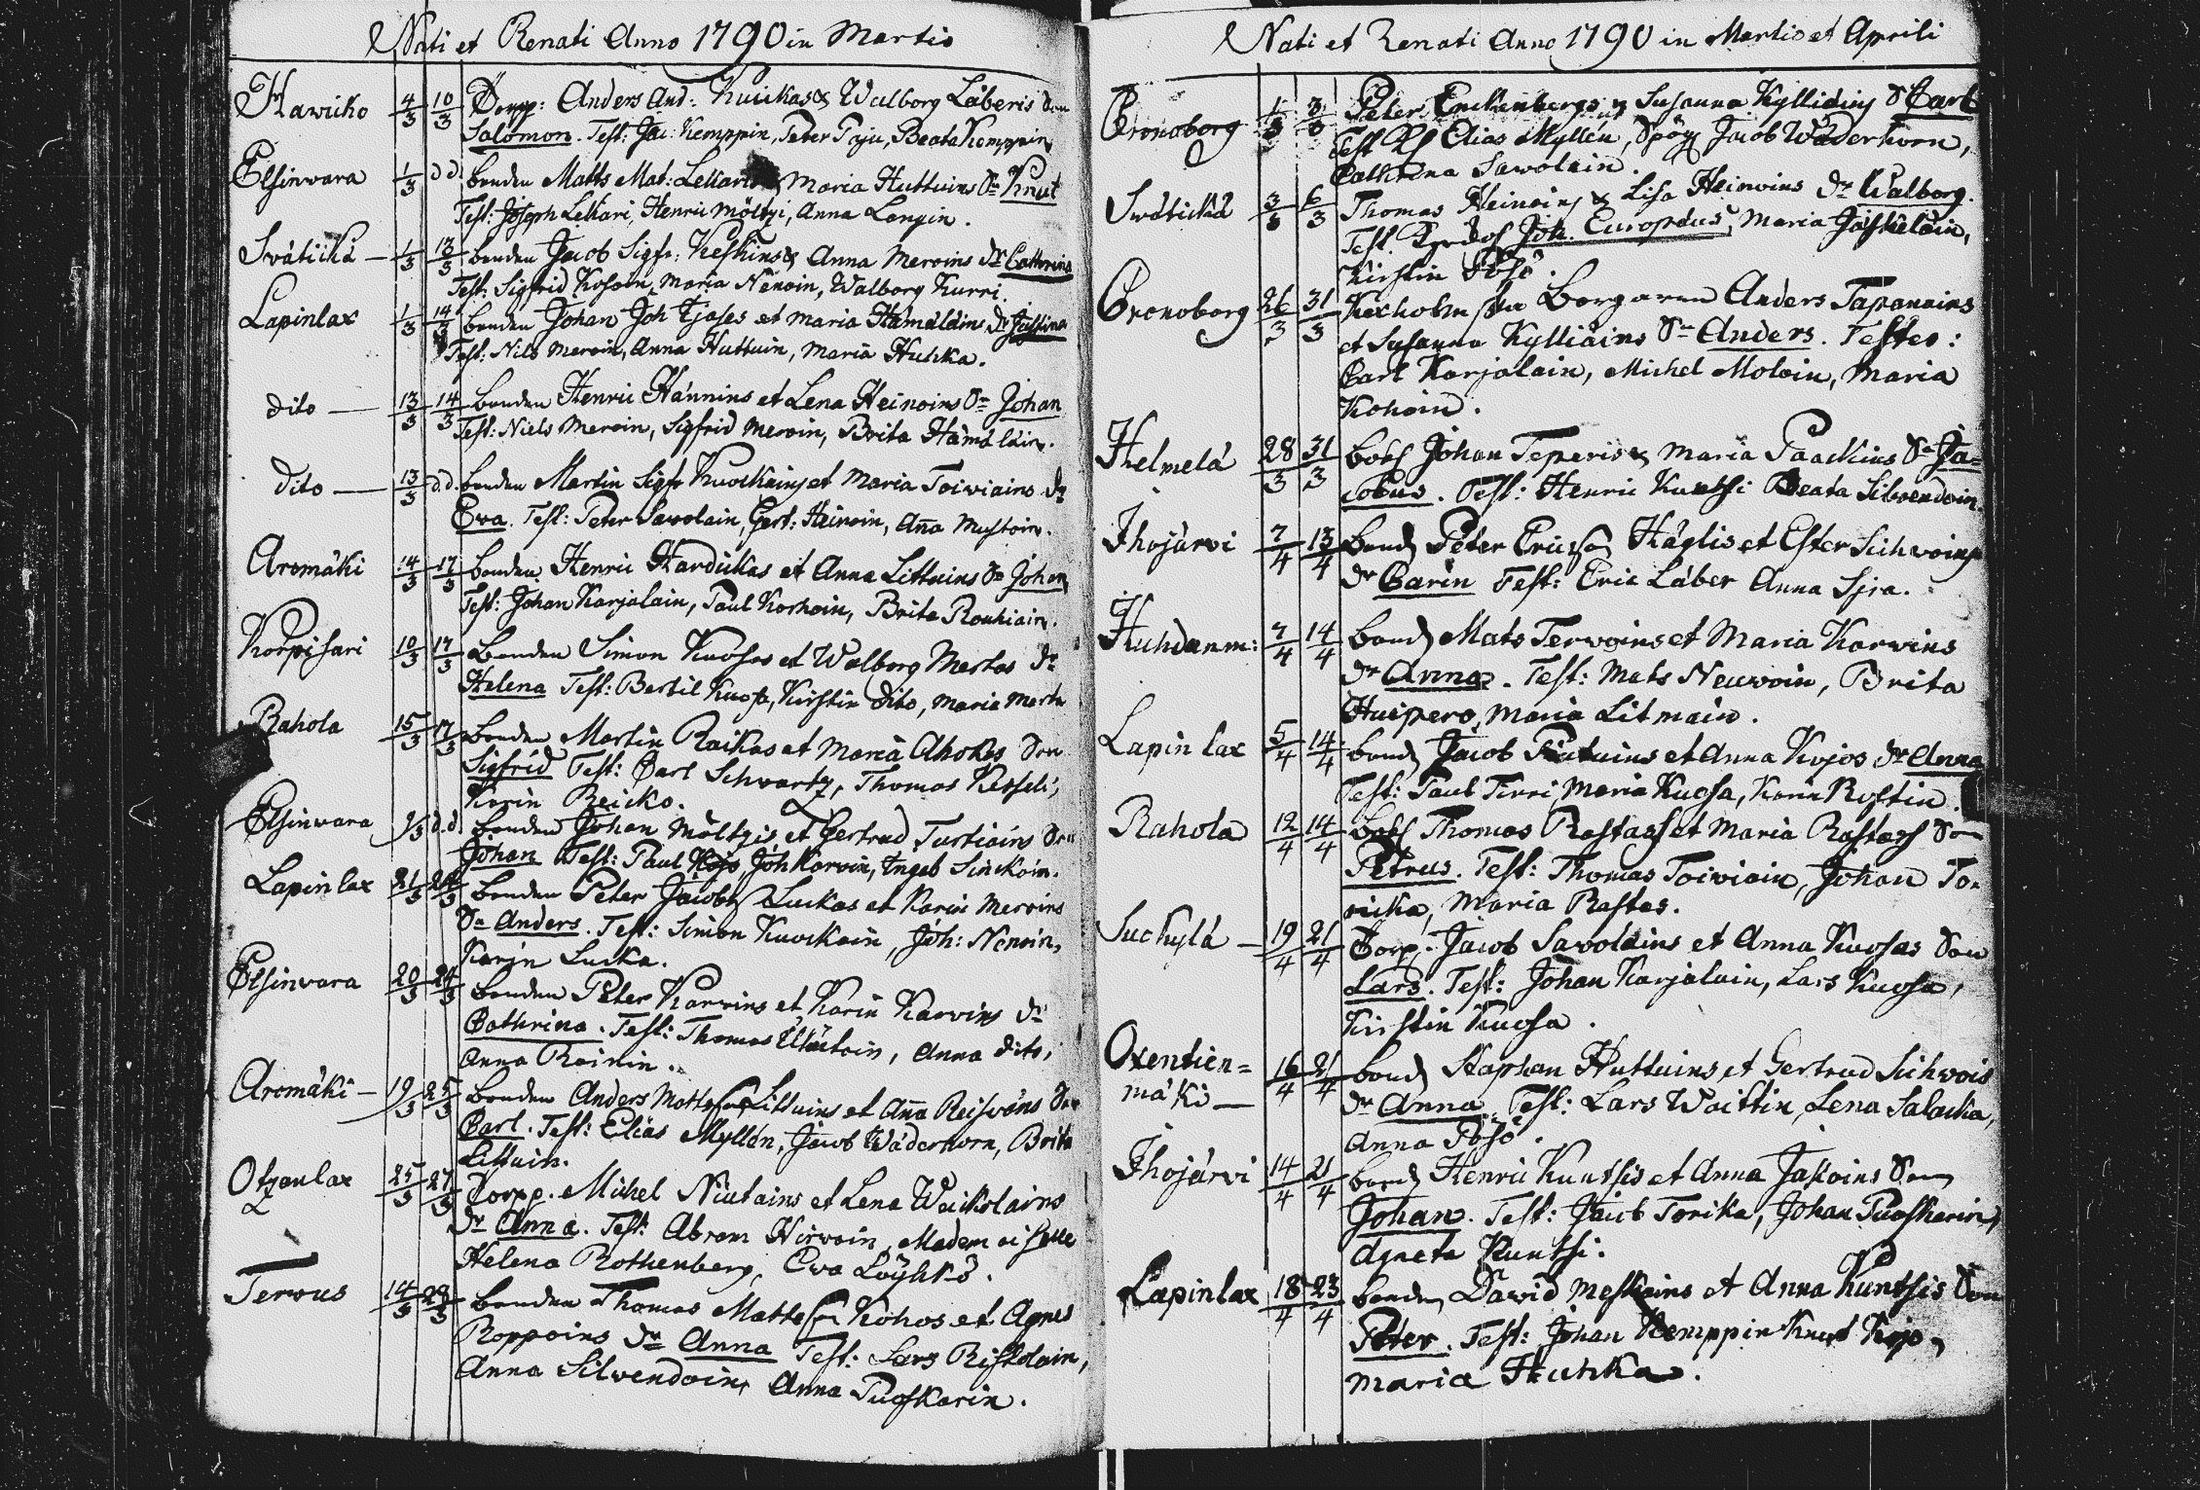 Nati et Renati Anno 1790 in Martio
Hawicko 4/3 10/3 Torpp: Anders And: Kuickas & Walborg Läberis Son
Salomon. Test: Jac: Kemppin, Peter Paju, Beata Kemppin
Elsinwara 1/3 d d. bonden Matts Mat: Lekari & Maria Huttuins Sn Knut
Test: Joseph Lekari, Henric Möltzi, Anna Langin.
Swätickä — 1/3 13/3 bonden Jacob Sigfr: Keskins & Anna Meroins Dr Cathrina
Test: Sigfrid Kosoin, Maria Nenoin, Walborg Kurri.
Lapinlax 1/3 14/3 bonden Johan Joh Tjases et Maria Hämäläins Dr Justina
Test: Nils Meroin, Anna Huttuin, Maria Huhka.
dito — 13/3 14/3 bonden Henric Hännins et Lena Heinoins Sn Johan
Test: Niels Meroin, Sigfrid Meroin, Brita Hämäläin.
dito — 13/3 d.d. bonden Martin Sigfr Kuockains et Maria Toiwiains Dr
Ewa. Test: Peter Sawolain, Gert: Heinoin, Anna Mustoin.
Aromäki 14/3 17/3 bonden Henric Hardickas et Anna Littuins Sn Johan
Test: Johan Karjalain, Paul Korhoin, Brita Rouhiain.
Korpisari 10/3 17/3 Bonden Simon Kuosas et Walborg Martas Dr
Helena Test: Bertil Kuosa, Kirstin dito, Maria Marta
Rahola 15/3 17/3 bonden Martin Raikas et Maria Ahokas Son
Sigfrid Test: Carl Schwartz, Thomas Kesseli,
Karin Reicko.
Elsinwara 9/3 d.d. bonden Johan Möltzis et Gertrud Turtiains Son
Johan Test: Paul Kojo, Joh Karvin, Ingeb Sinckoin.
Lapinlax 21/3 24/3 bonden Peter Jacobs Luckas et Karin Meroins
Sn Anders. Test: Simon Kuockain, Joh: Nenoin,
Karin Lucka.
Elsinvara 20/3 24/3 bonden Peter Karvins et Karin Karvins Dr
Cathrina. Test: Thomas, Anna dito,
Anna Roinin.
Aromäki — 19/3 25/3 bonden Anders Mattsson Littuins et Anna Reiswöns Son
Carl. Test: Elias Myllén, Jacob Wäderhorn, Brita
Littuin.
Otzanlax 25/3 27/3 Torpp. Michel Niutains et Lena Waikolains
Dr Anna. Test: Abram Hirvoin, Mademoiselle
Helena Rothenberg, Ewa Löyhkö.
Terwus 14/3 28/3 bonden Thomas Mattsson Kohos et Agnes
Roppoins Dr Anna Test: Lars Ristolain,
Anna Silvendoin, Anna Puoskarin.
Nati et Renati Anno 1790 in Martio et Aprili
Cronoborg 1/3 3/3 Peter Enckenbergs & Susanna Kylliäins S Carl
Test Elias Myllén, Jacob Wäderhorn,
Cathrina Sawolain.
Swätickä 3/3 6/3 Thomas Heinoins & Lisa Heinoins Dr Walborg.
Test. Joh. Europæus, Maria Jäskeläin,
Kirstin Pösö.
Cronoborg 26/3 31/3 Kexholms Borgaren Anders Tapanains
et Susanna Kylliäins Sn Anders. Testes:
Carl Karjalain, Michel Moloin, Maria
Kohoin.
Helmelä 28/3 31/3 Johan Teperis & Maria Paackins Sn Ja-
cobus. Test: Henric Kuntsi Beata Silwendoin.
Ihojärvi 7/4 13/4 bond Peter Ericson Häglis et Ester Sichvoins
Dr Carin Test: Eric Läber Anna Sjra.
Huhdanm: 7/4 14/4 bond Mats Terwoins et Maria Karwins
Dr Anna. Test: Mats Neuwoin, Brita
Huipero, Maria Litmain.
Lapinlax 5/4 14/4 bond Jacob Piutuins et Anna Kojos Dr Anna
Test: Paul Tirri, Maria Kuosa, Karin Rostin.
Rahola 12/4 14/4 Thomas Rastass et Maria Rastass Son
Petrus. Test: Thomas Toiviain, Johan To-
ricka, Maria Rastas.
Suckylä — 19/4 21/4 Torp. Jacob Savolains et Anna Kuosas Son
Lars. Test: Johan Karjalain, Lars Kuosa,
Kirstin Kuosa.
Oxentien=
mäki — 16/4 21/4 bond Staphan Huttuins et Gertrud Sichvois
Dr Anna. Test: Lars Waittin, Lena Salacka,
Anna Pösö.
Ihojärvi 14/4 21/4 bond Henric Kuntsis et Anna Jakoins Son
Johan. Test: Jacob Torika, Johan Puoskarin,
Agneta Kuntsi.
Lapinlax 18/4 23/4 bonden David Meskains et Anna Kuntsis Son
Peter. Test: Johan Kemppin Knut Kojo,
Maria Huhka.